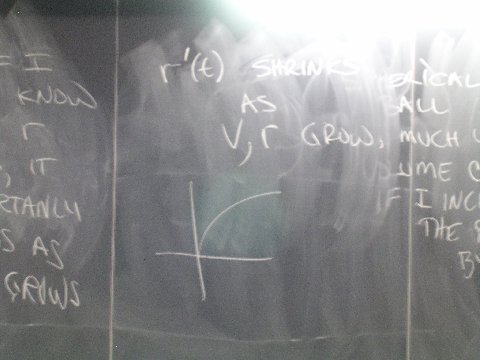 = I
KNOW
r
, IT
RTANLY
S AS
GROWS
r'(t) SHRINKS
AS
V, r GROW,
RICAL
BALL
MUCH
UME
IF I INC
THE
B